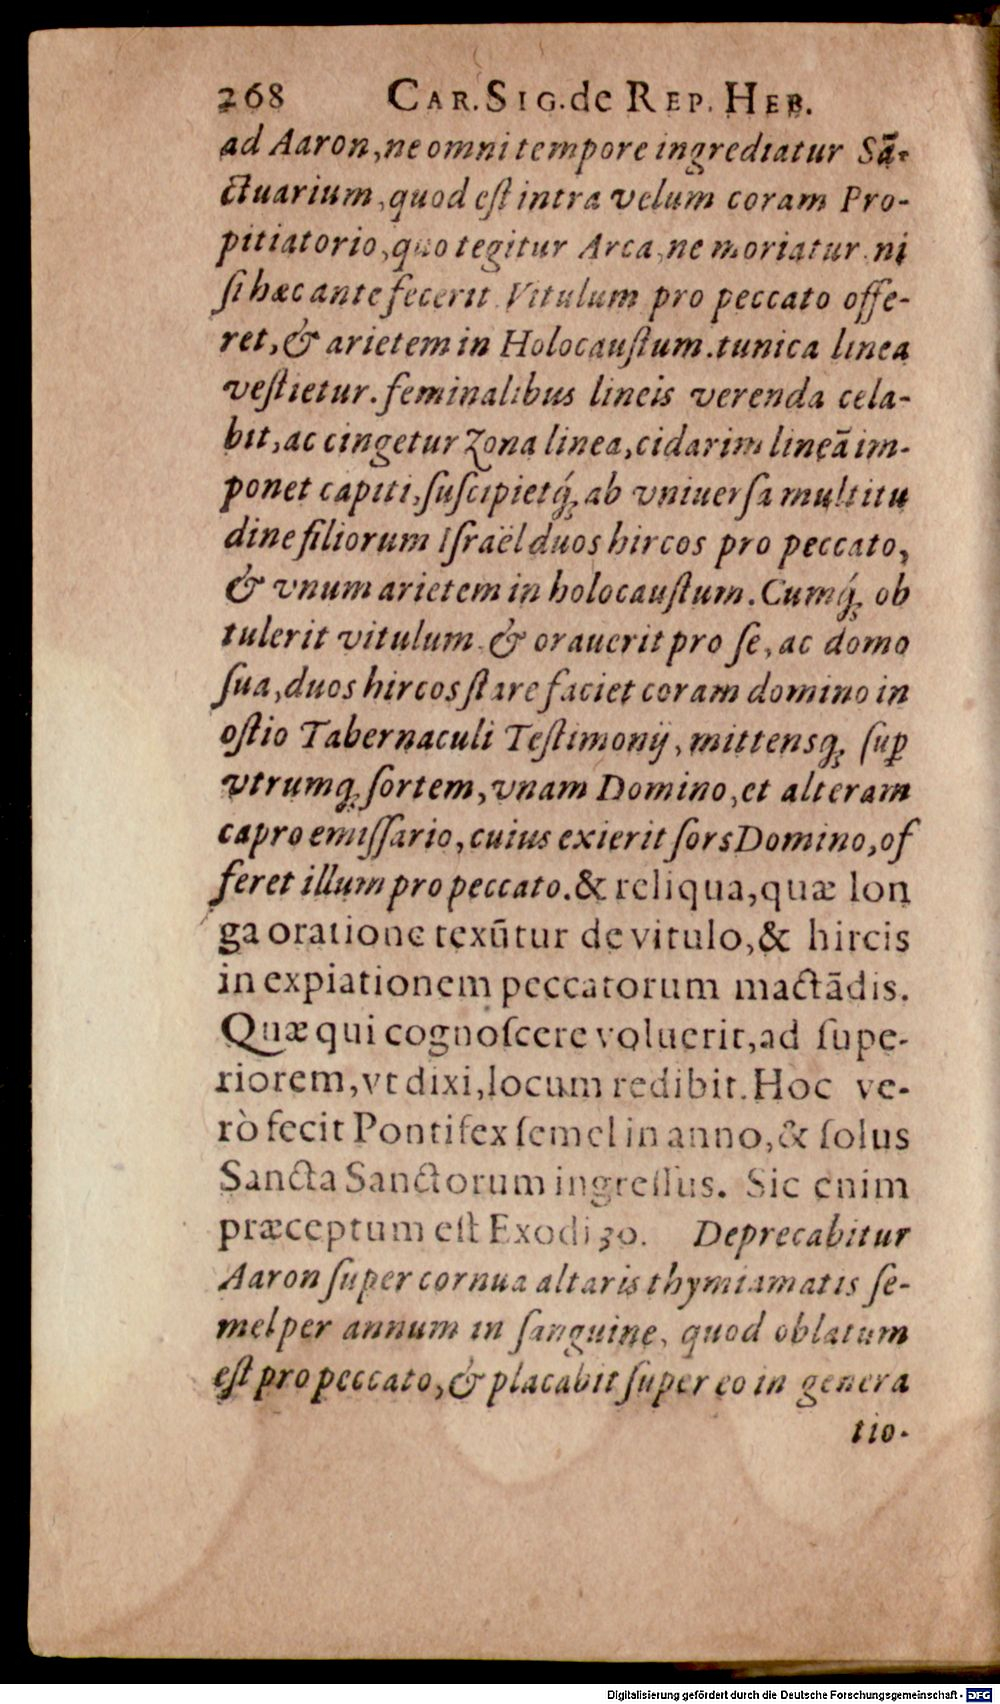 268 CAR. SIG. de REP. HEB.
ad Aaron, ne omni tempore ingrediatur Sā-
ctuarium, quod eſt intra velum coram Pro-
pitiatorio, quo tegitur Arca, ne moriatur. ni
ſi hæc ante fecerit. Vitulum pro peccato offe-
ret, & arietem in Holocauſtum. tunica linea
veſtietur. feminalibus lineis verenda cela-
bit, ac cingetur Zona linea, cidarim lineā im-
ponet capiti, ſuſcipietq́; ab vniuerſa multitu
dine filiorum Iſraël duos hircos pro peccato,
& vnum arietem in holocauſtum. Cumq́; ob
tulerit vitulum. & orauerit pro ſe, ac domo
ſua, duos hircos ſtare faciet coram domino in
oſtio Tabernaculi Teſtimonij, mittensq; ſuꝑ
vtrumq; ſortem, vnam Domino, et alteram
capro emiſſario, cuius exierit ſors Domino, of
feret illum pro peccato. & reliqua, quæ lon
ga oratione texūtur de vitulo, & hircis
in expiationem peccatorum mactādis.
Quæ qui cognoſcere voluerit, ad ſupe-
riorem, vt dixi, locum redibit. Hoc ve-
rò fecit Pontifex ſemel in anno, & ſolus
Sancta Sanctorum ingreſſus. Sic enim
præceptum eſt Exodi 30. Deprecabitur
Aaron ſuper cornua altaris thymiamatis ſe-
mel per annum in ſanguine, quod oblatum
eſt pro peccato, & placabit ſuper eo in genera
tio-
Digitalisierung gefördert durch die Deutsche Forschungsgemeinschaft - DFG